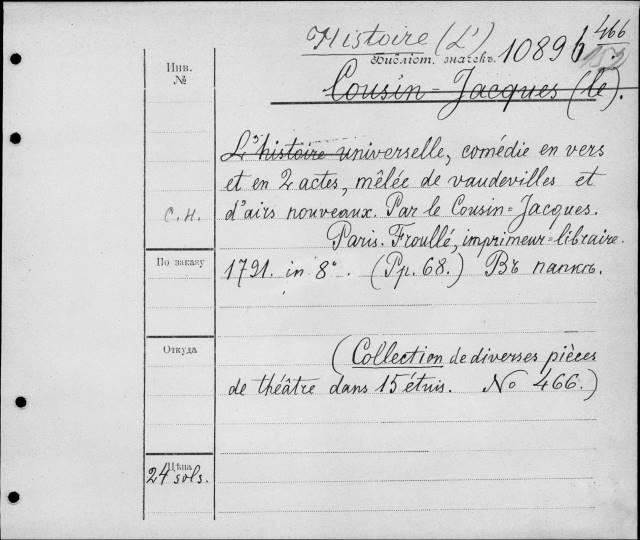 Histoire (L')
466
Инв.
№
Библіот. значекъ
1089
Cousin-Jacques (le).
L'histoire universelle, comédie en vers
et en 2 actes, mêlée de vaudevilles et
С.Н.
d'airs nouveaux. Par le Cousin-Jacques.
Paris. Froullé, imprimeur-libraire.
По заказу
1791. in 8°. (Pp. 68.) Въ папкѣ.
Откуда
(Collection de diverses pièces
de théâtre dans 15 étuis. No 466.)
Цѣна
24 sols.